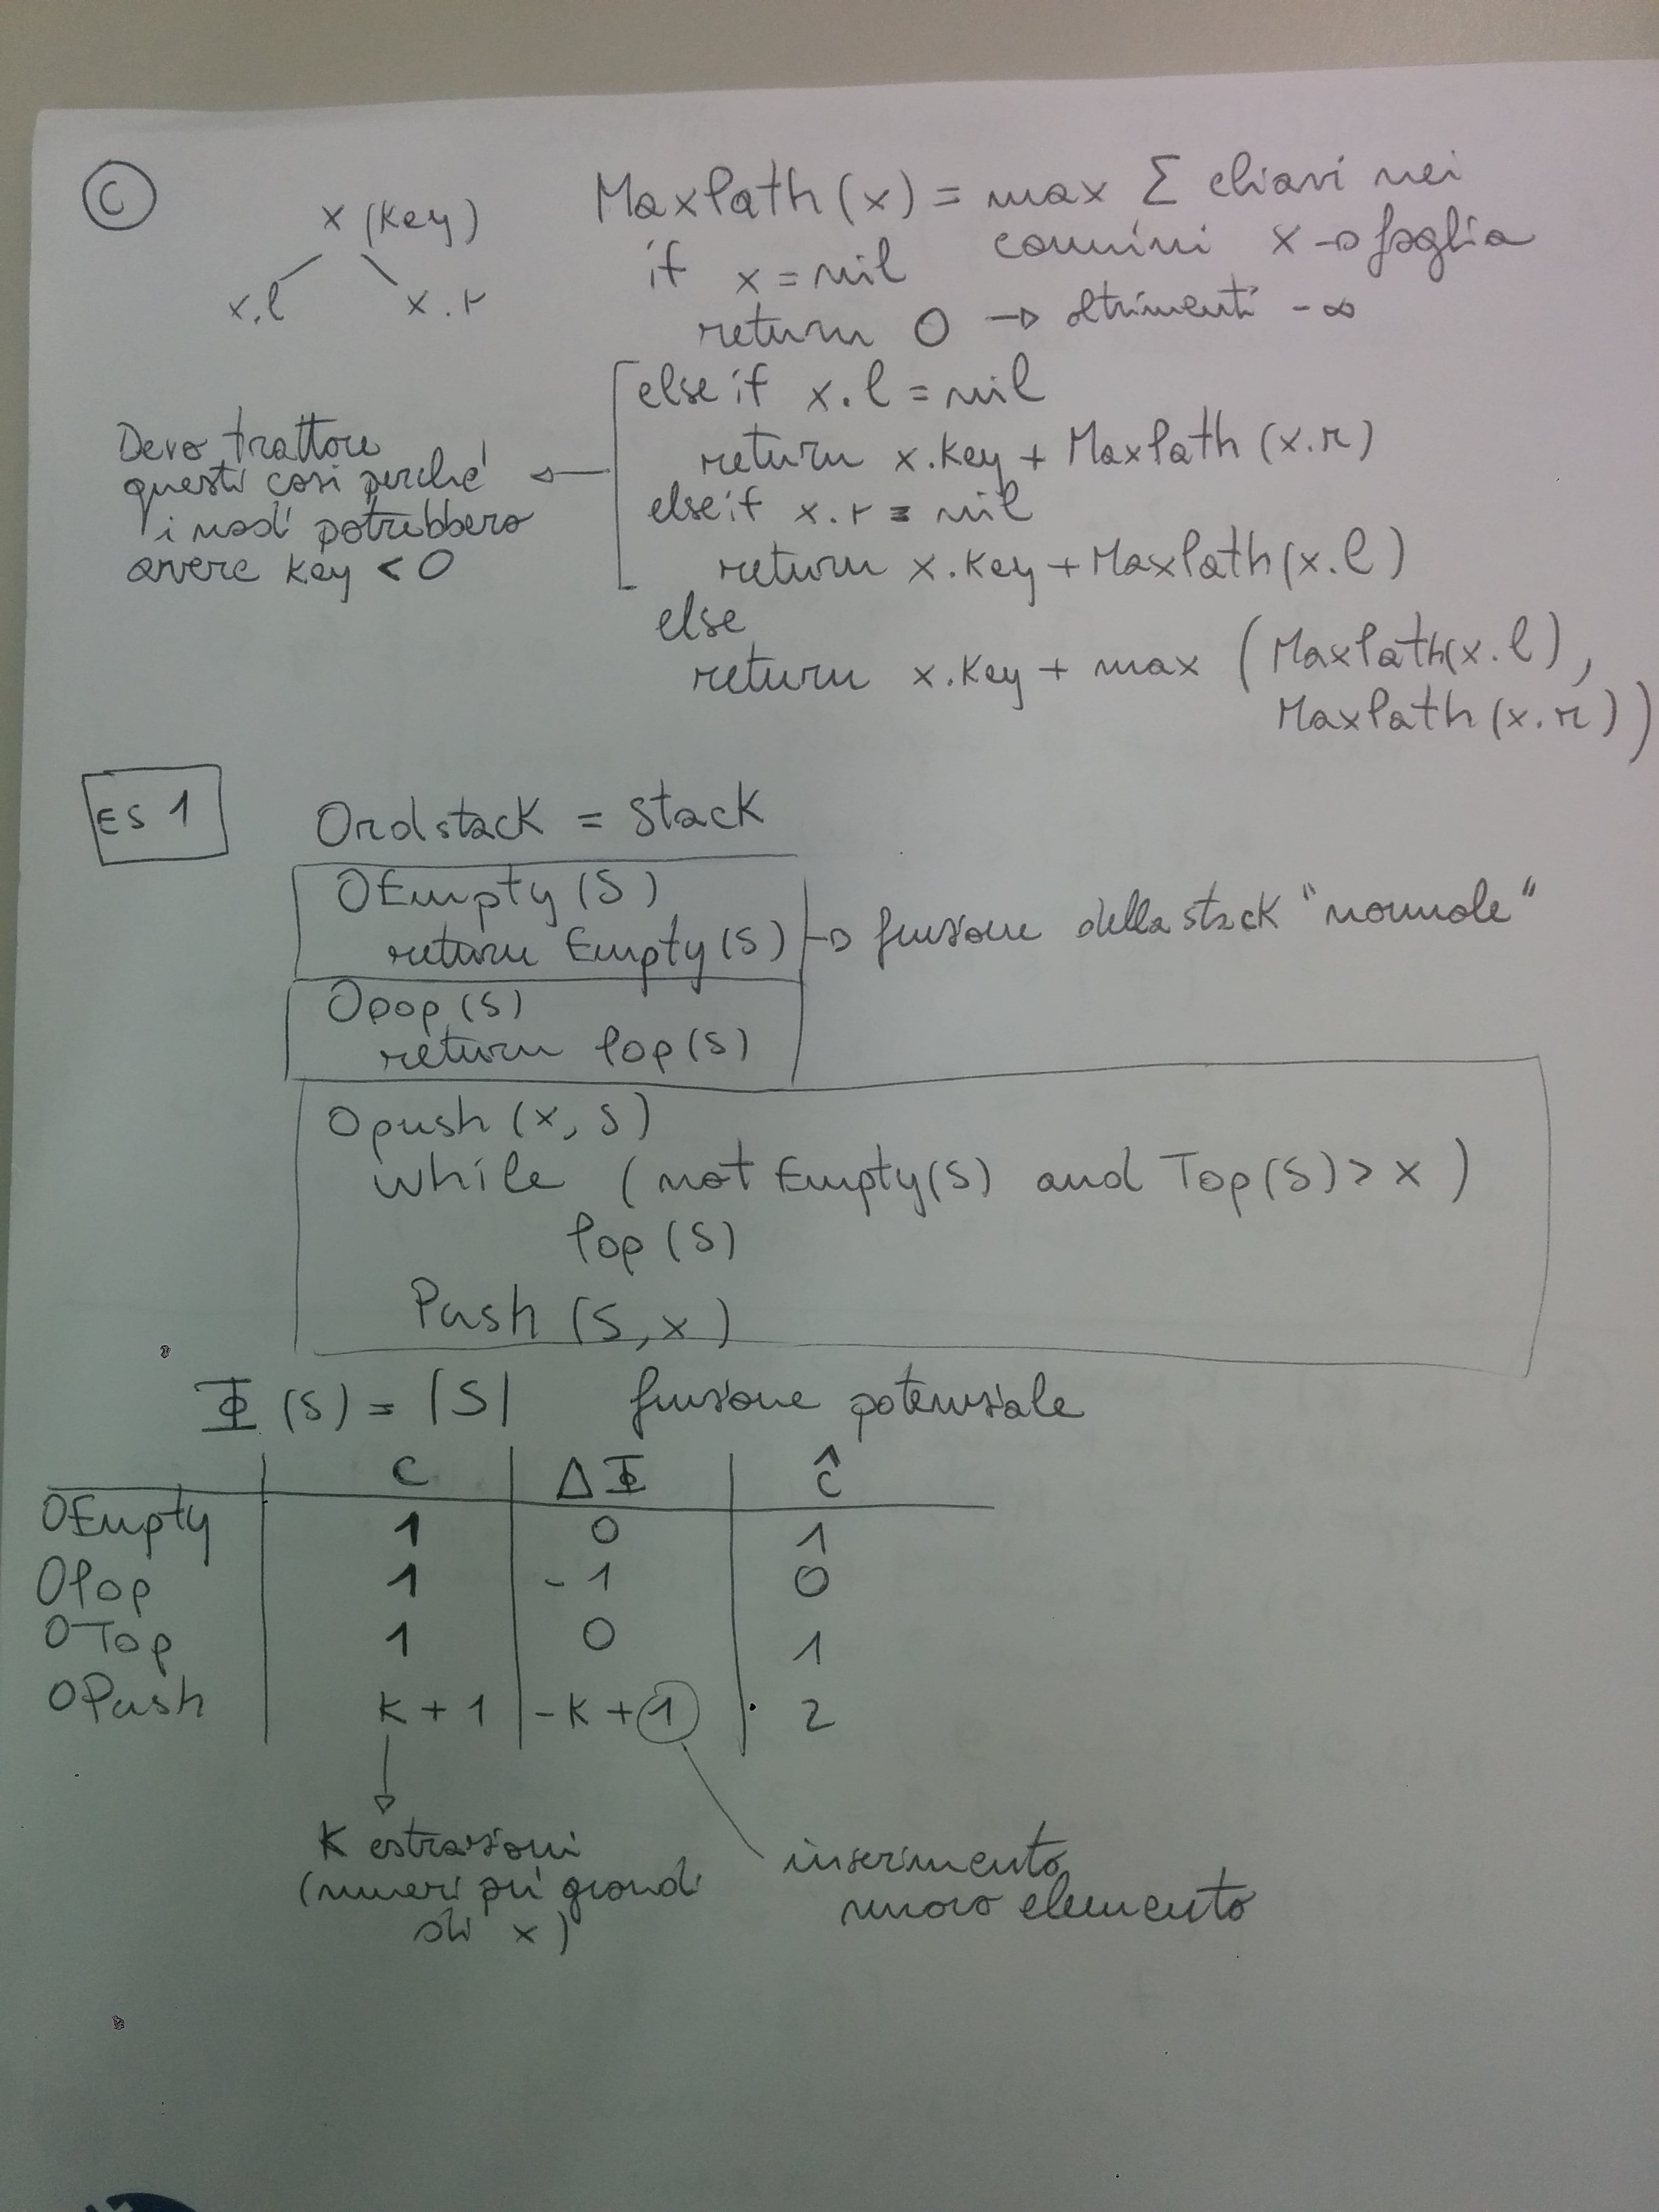 C
x (Key)
x.l x.r
MaxPath (x) = max Σ chiavi nei
cammini x → foglia
if x = nil
return 0 → altrimenti -∞
else if x.l = nil
return x.Key + MaxPath (x.r)
else if x.r = nil
return x.Key + MaxPath (x.l)
else
return x.Key + max (MaxPath(x.l),
MaxPath (x.r))
Devo trattare
questi casi perché
i nodi potrebbero
avere Key < 0
ES 1
Ordstack = Stack
OEmpty (S)
return Empty (S) → funzione della stack "normale"
Opop (S)
return Pop (S)
Opush (x, S)
while (not Empty(S) and Top(S) > x)
Pop (S)
Push (S, x)
Φ (S) = |S| funzione potenziale
C ΔΦ ĉ
OEmpty 1 0 1
OPop 1 -1 0
OTop 1 0 1
OPush K + 1 -K + 1 2
K estrazioni
(numeri più grandi
di x)
inserimento
nuovo elemento